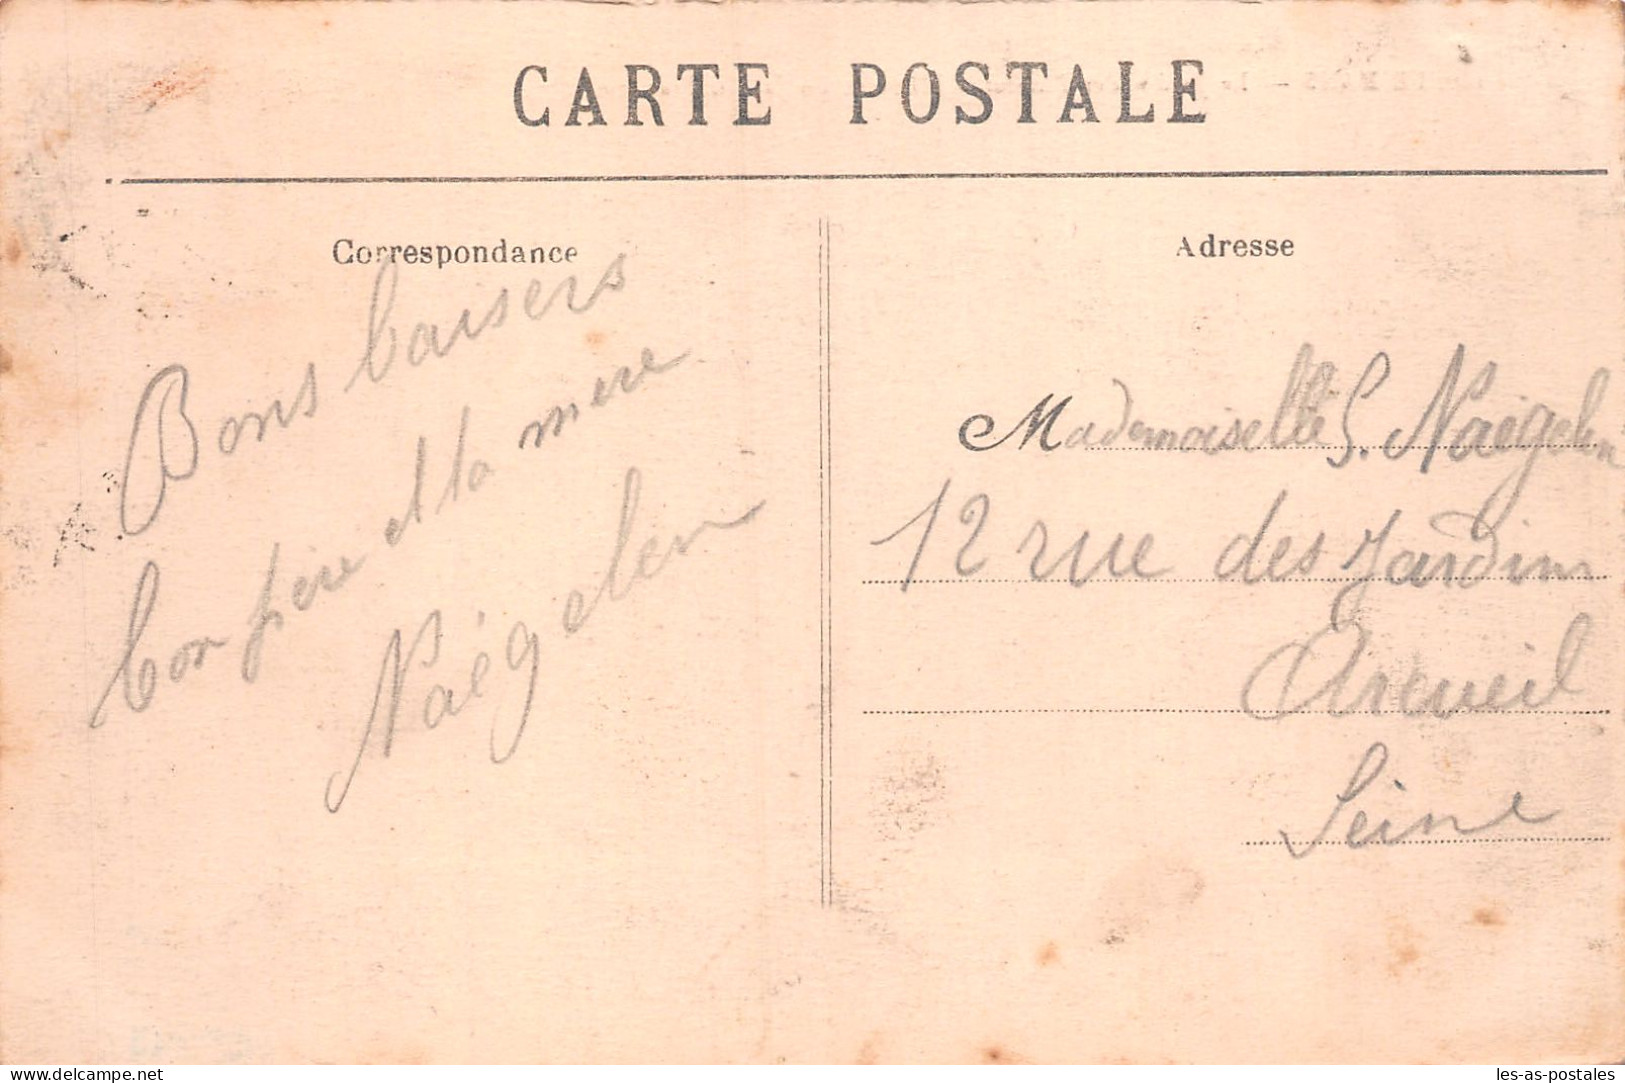 CARTE POSTALE
Correspondance
Bons baisers
ton père et ta mère
Naégelen
Adresse
Mademoiselle S. Naégelen
12 rue des Jardins
Arcueil
Seine
www.delcampe.net
les-as-postales